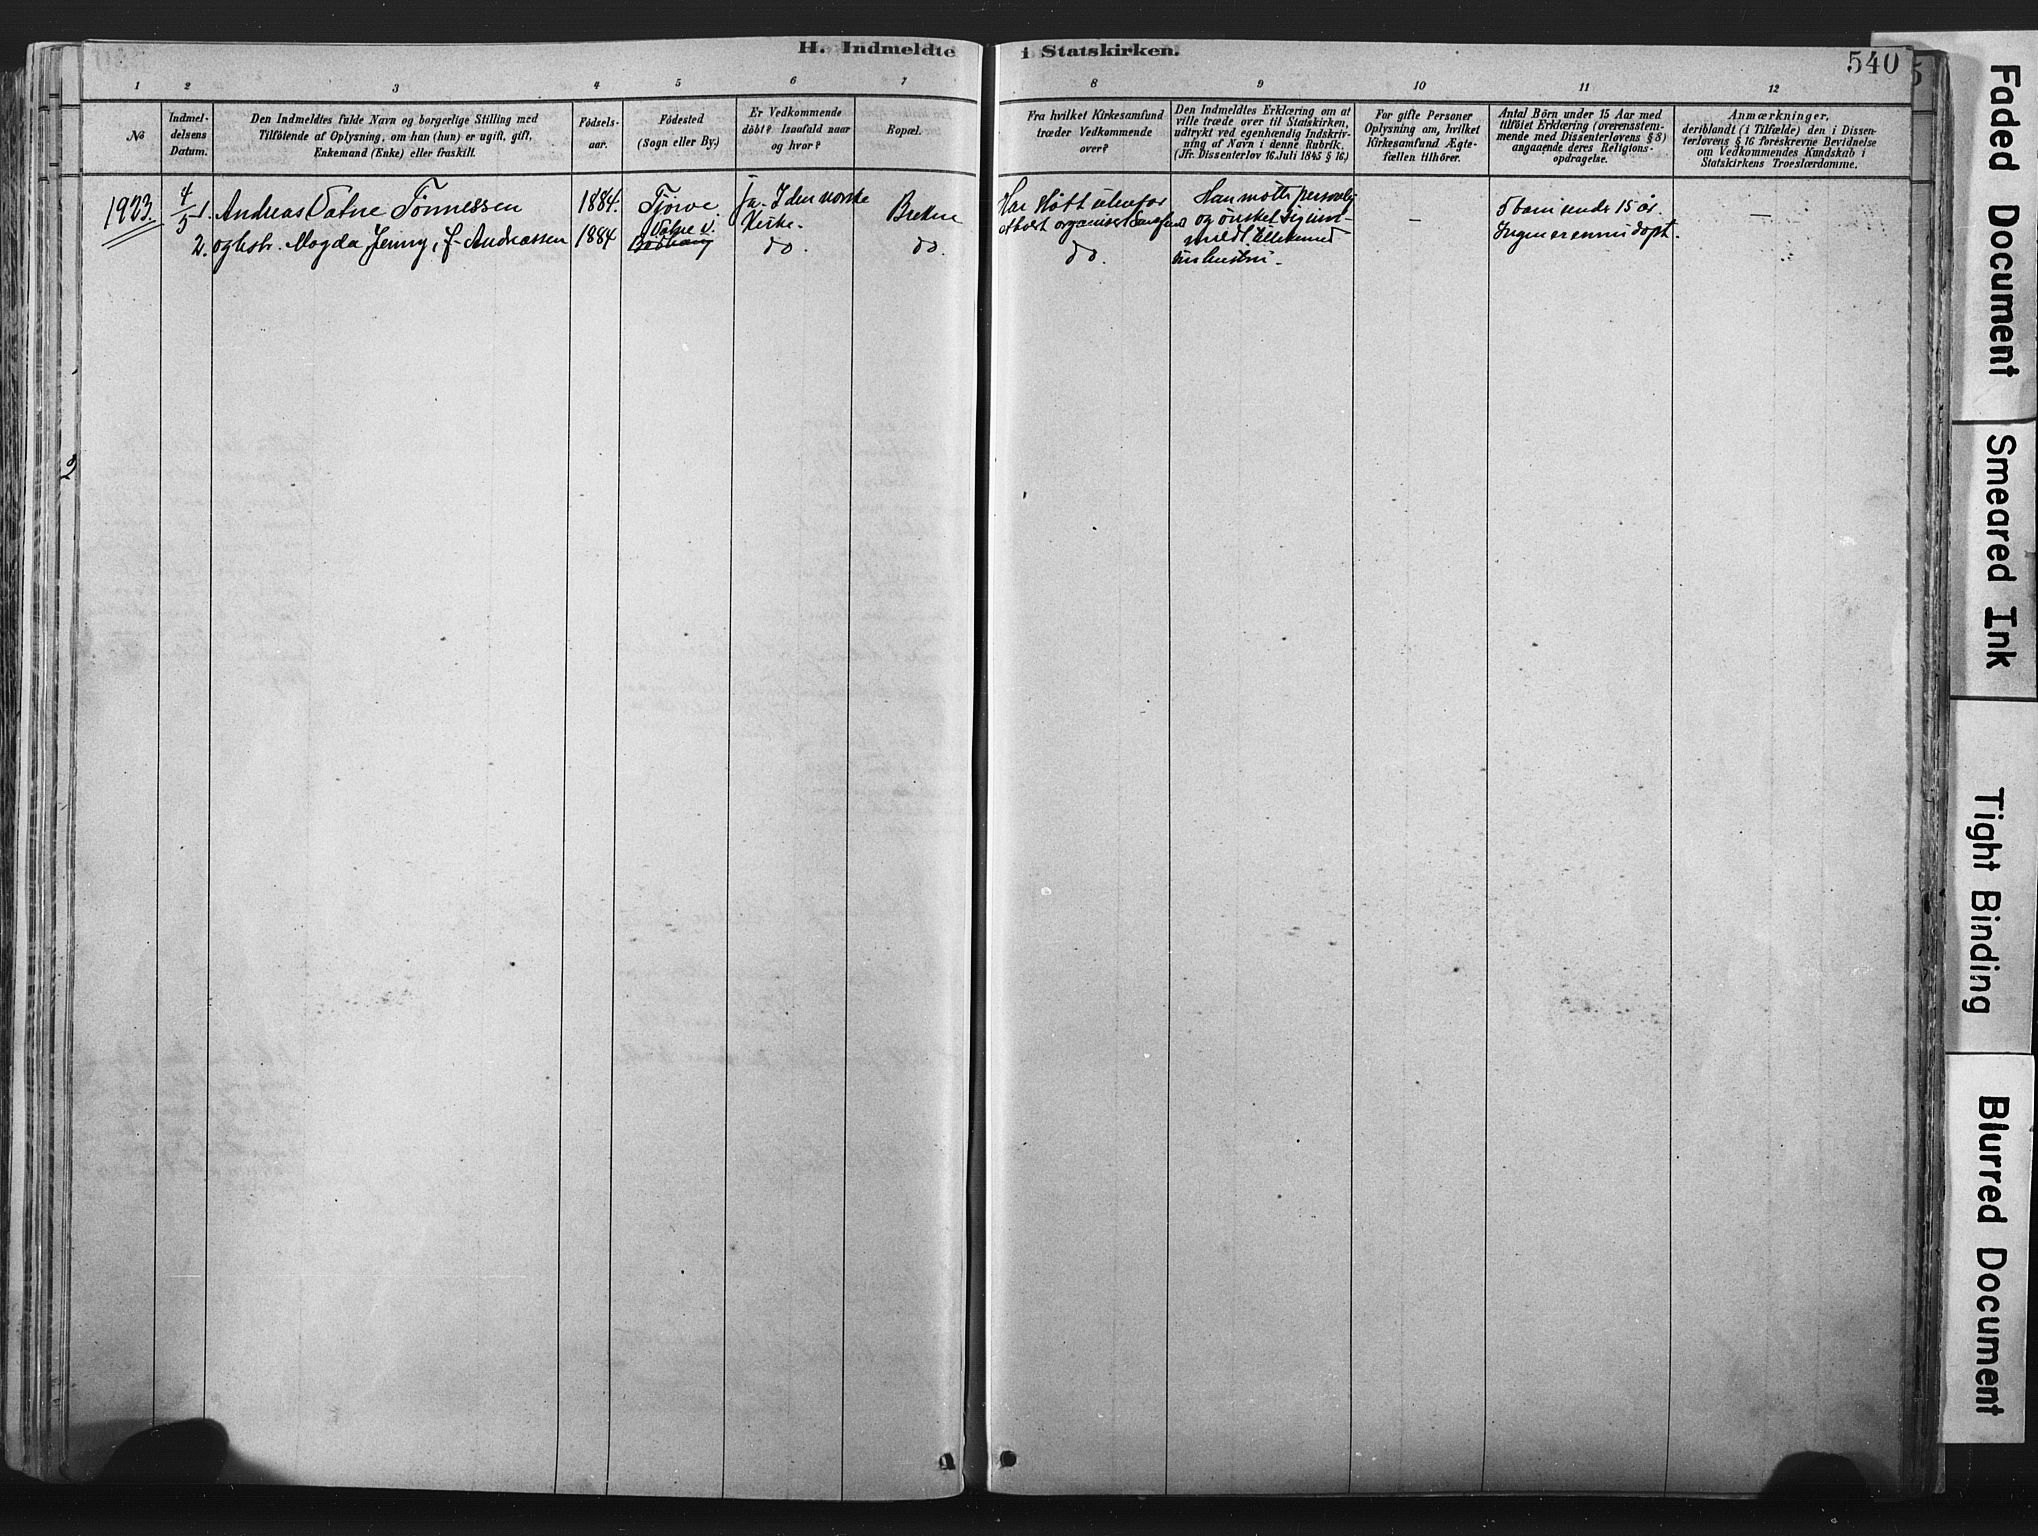 H. Indmeldte i Statskirken.
540
1 2 3 4 5 6 7 8 9 10 11 12
No
Indmel-
delsens
Datum.
Den Indmeldtes fulde Navn og borgerlige Stilling med
Tilföiende af Oplysning, om han (hun) er ugift, gift,
Enkemand (Enke) eller fraskilt.
Födsels-
aar.
Födested
(Sogn eller By.)
Er Vedkommende
döbt? Isaafald naar
og hvor?
Bopæl.
Fra hvilket Kirkesamfund
træder Vedkommende
over?
Den Indmeldtes Erklæring om at
ville træde over til Statskirken,
udtrykt ved egenhændig Indskriv-
ning af Navn i denne Rubrik.
(Jfr. Dissenterlov 16. Juli 1845 § 16.)
For gifte Personer
Oplysning om, hvilket
Kirkesamfund Ægte-
fællen tilhörer.
Antal Börn under 15 Aar med
tilföiet Erklæring (overensstem-
mende med Dissenterlovens § 8)
angaaende deres Religions-
opdragelse.
Anmærkninger,
deriblandt (i Tilfælde) den i Dissen-
terlovens § 16 foreskrevne Bevidnelse
om Vedkommendes Kundskab i
Statskirkens Troeslærdomme.
1923.
4/5
1. Andreas Tønnessen
1884.
Ja. I den norske
Kirke.
Har stått utenfor
Han møtte personlig
og ønsket sig inn-
meldt
–
5 barn under 15 år.
Ingen er ennu døpt.
–
2. og hstr. Magda Jenny, f. Andreassen
1884
do.
do.
do.
2
Faded Document
Smeared Ink
Tight Binding
Blurred Document